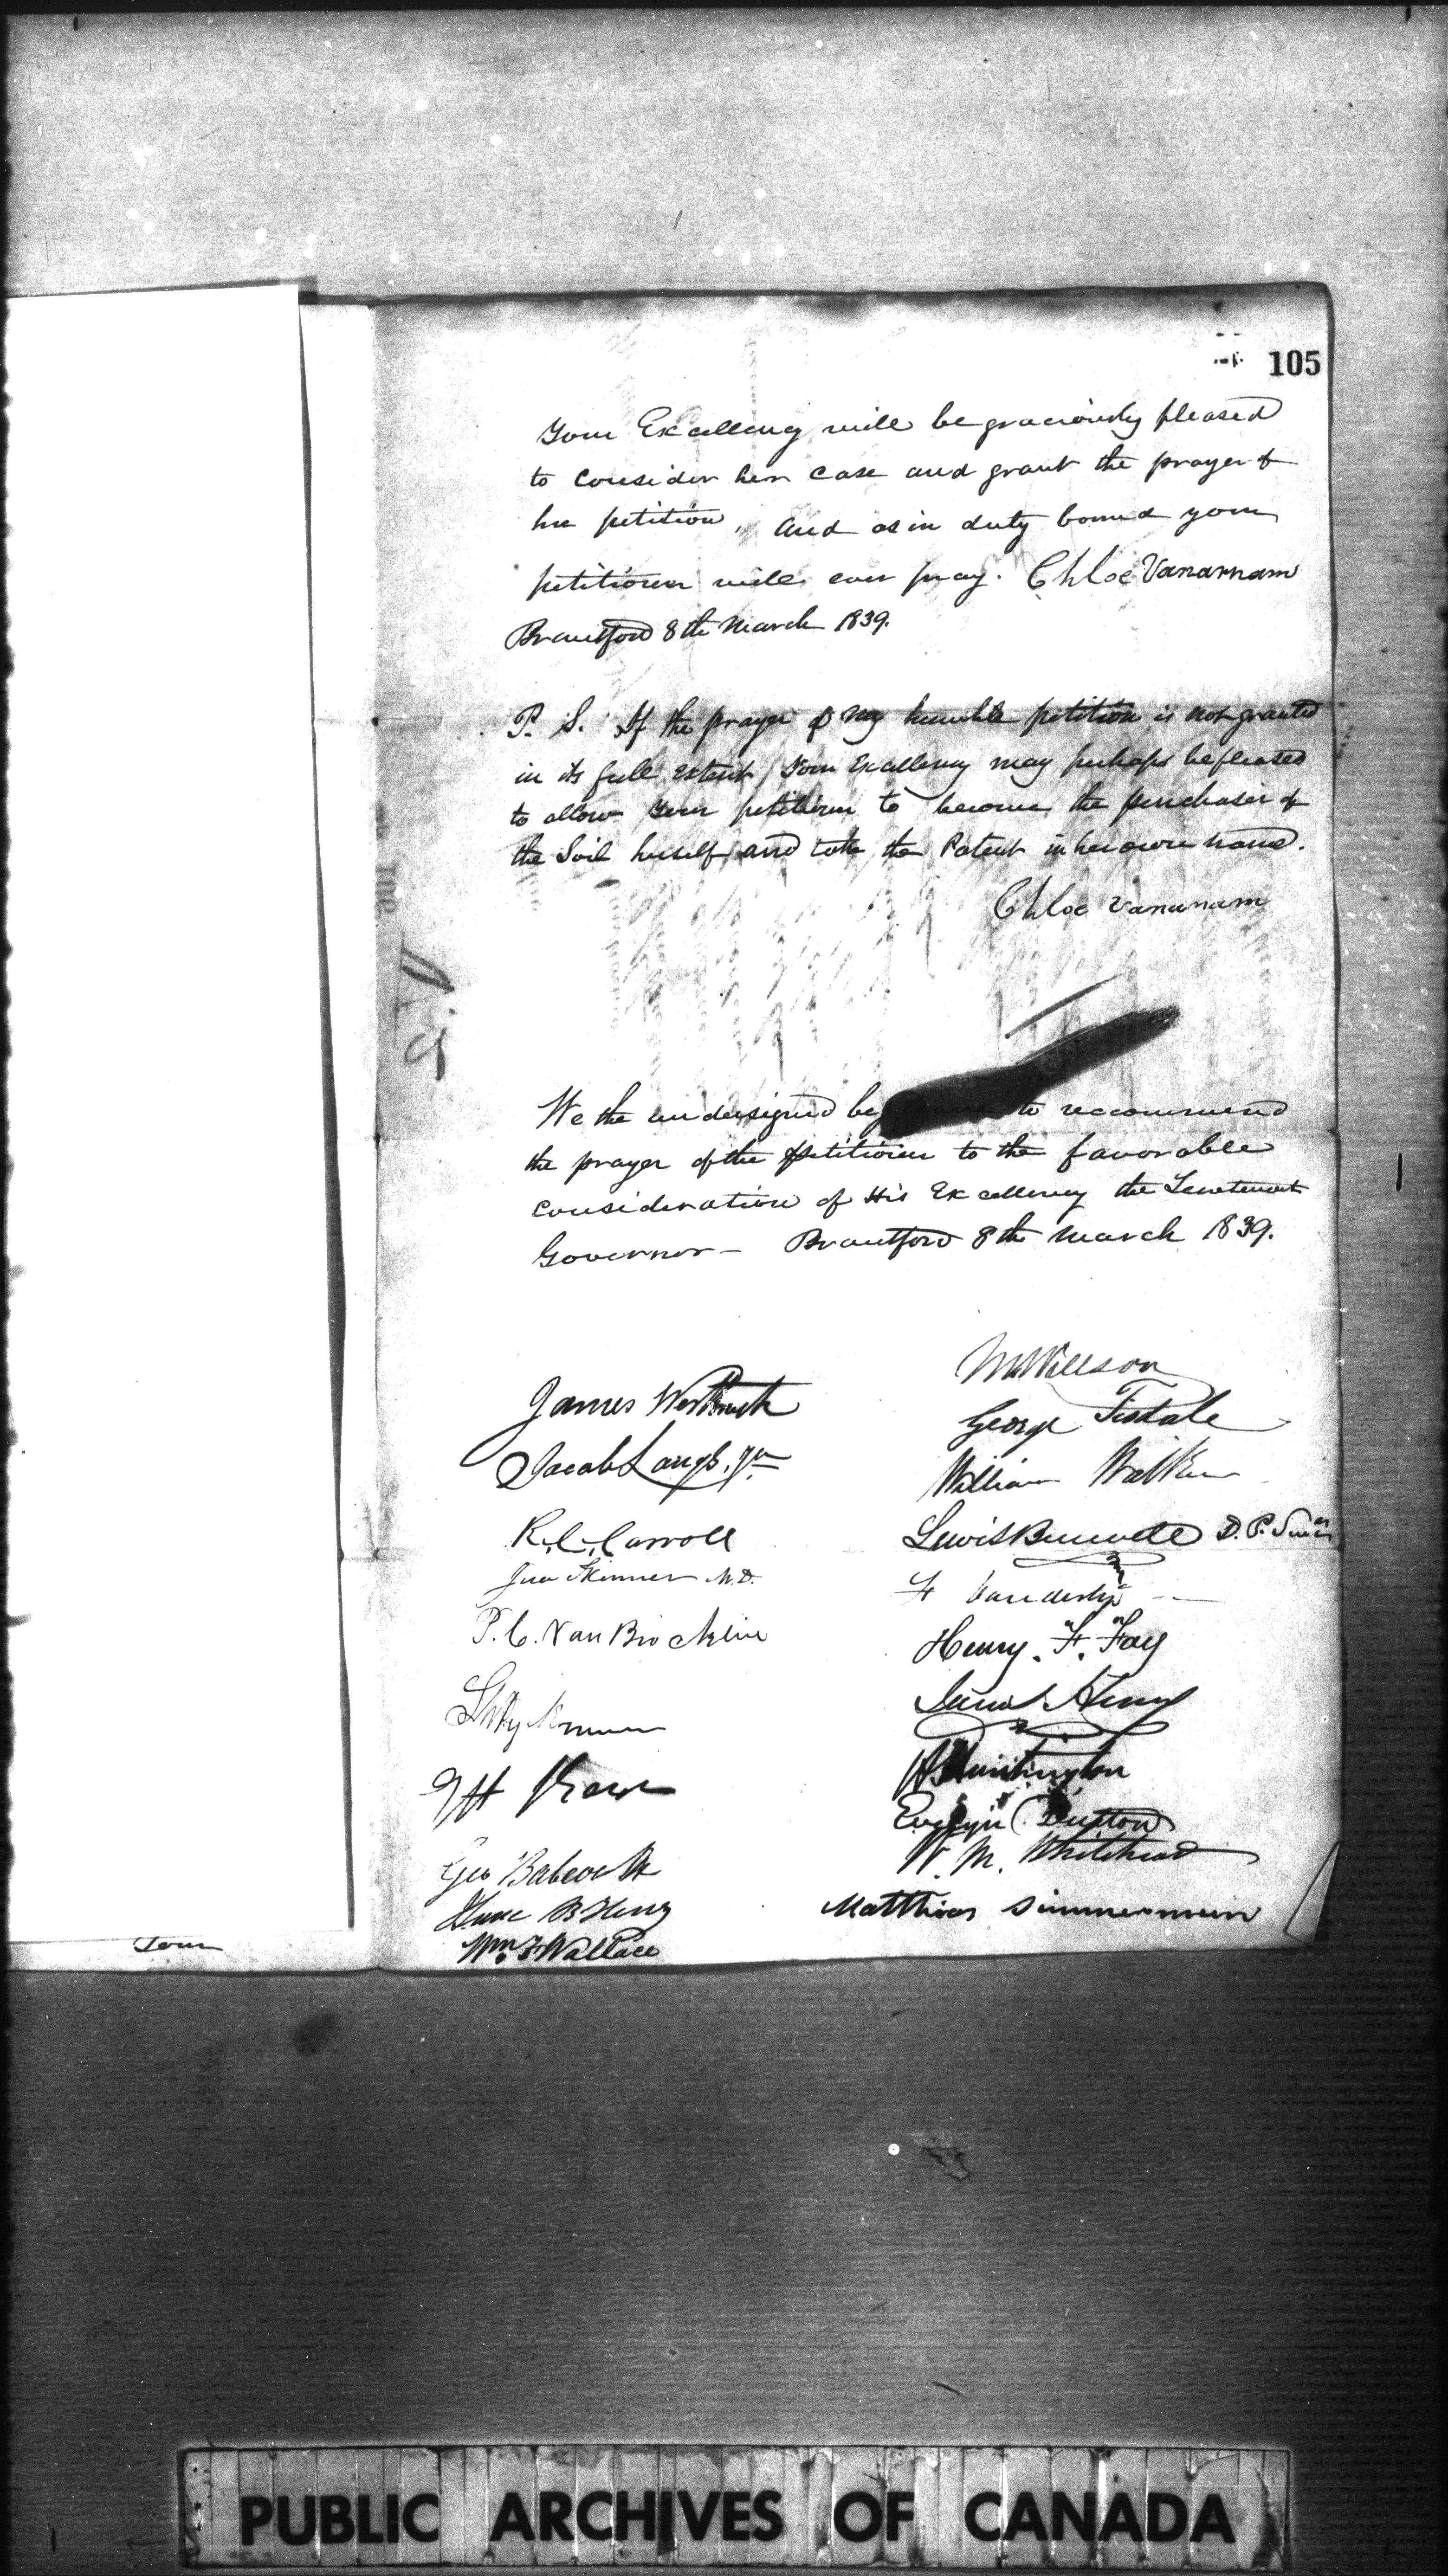 105
Your Excellency will be graciously pleased
to consider her case and grant the prayer of
her petition, and as in duty bound your
petitioner will ever pray. Chloe Vanarnam
Brantford 8th March 1839.
P. S. If the prayer of my humble petition is not granted
in its full extent, Your Excellency may perhaps be pleased
to allow your petitioner to become the purchaser of
the Soil herself and take the Patent in her own name.
Chloe Vanarnam
We the undersigned beg to reccommend
the prayer of the petitioner to the favorable
consideration of His Excellency the Lieutenant
Governor - Brantford 8th March 1839.
James
Jacob Langs, Jun
R. C. Carroll
Jno Skinner M.D.
P. C. Van Brocklin
Geo Babcock
B Henry
Wm. F Wallace
Willson
George Tisdale
William Walker
Lewis Burwell D. P. Sur
Vanderlip
Henry. F. Fay
Huntington
W. M. Whitehead
Matthias Simmermun
Your
PUBLIC ARCHIVES OF CANADA